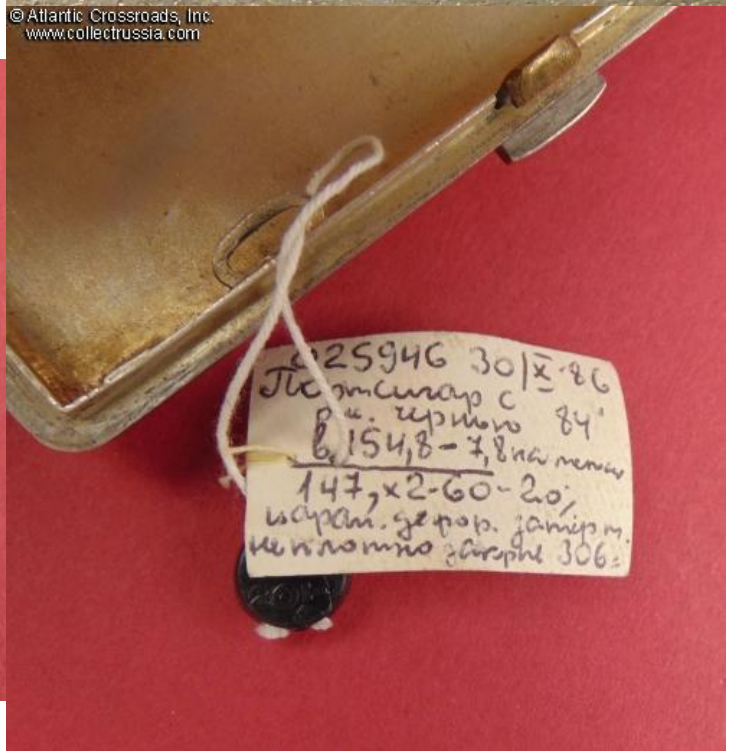 © Atlantic Crossroads, Inc.
www.collectrussia.com
025946 30/X-86
Портсигар с
рис. чернью 84°
в. 154,8-7,8 на
147, х2-60-20%
царап. дефор.
неплотно 306=